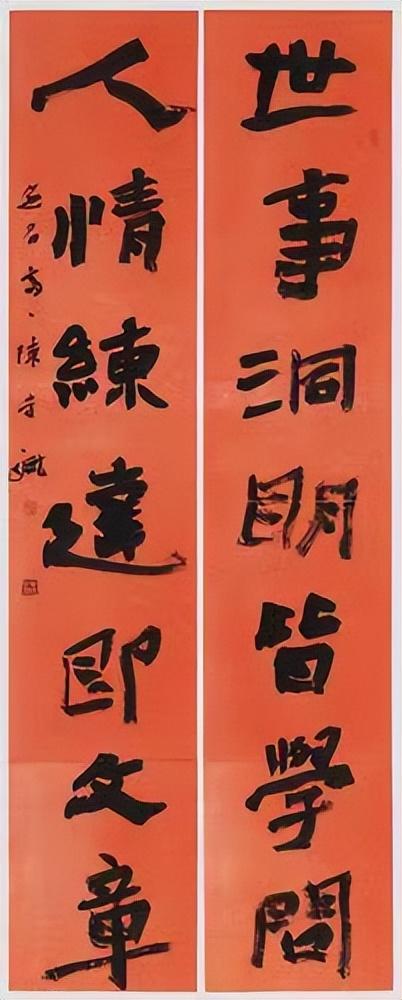 世事洞明皆學問
人情練達即文章
陳